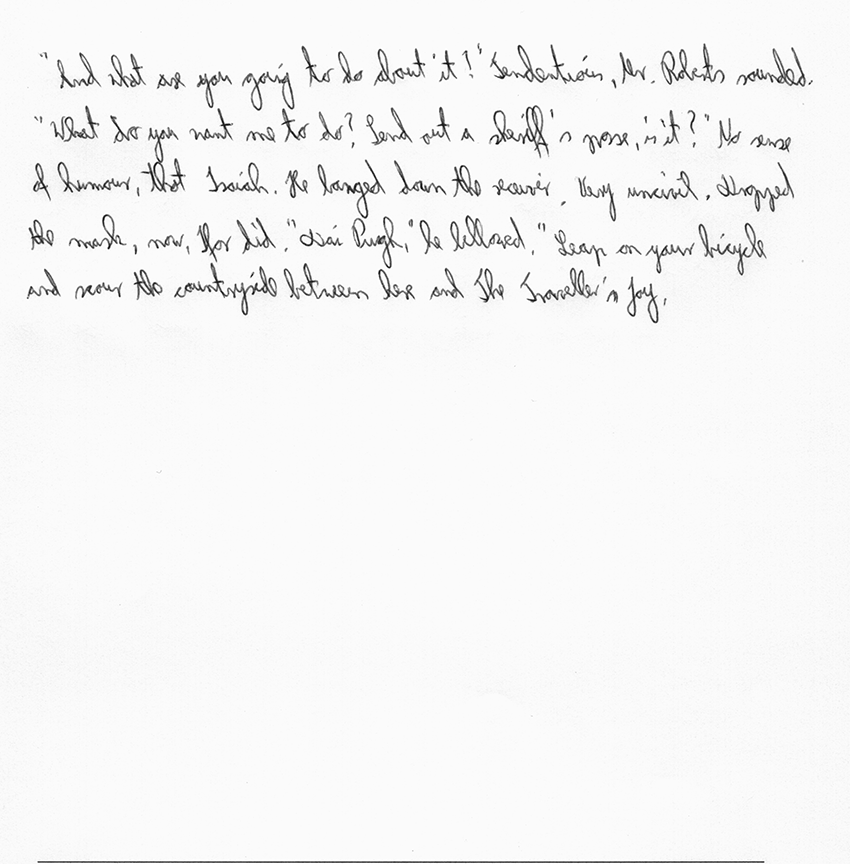 "And what are you going to do about it?" Tendentious, Mr. Roberts sounded.
"What do you want me to do? Send out a sheriff's posse, is it?" No sense
of humour, that Isaiah. He banged down the receiver. Very uncivil. Dropped
the mask, now, Ifor did. "Dai Pugh," he bellowed. "Leap on your bicycle
and scour the countryside between here and The Traveller's Joy.